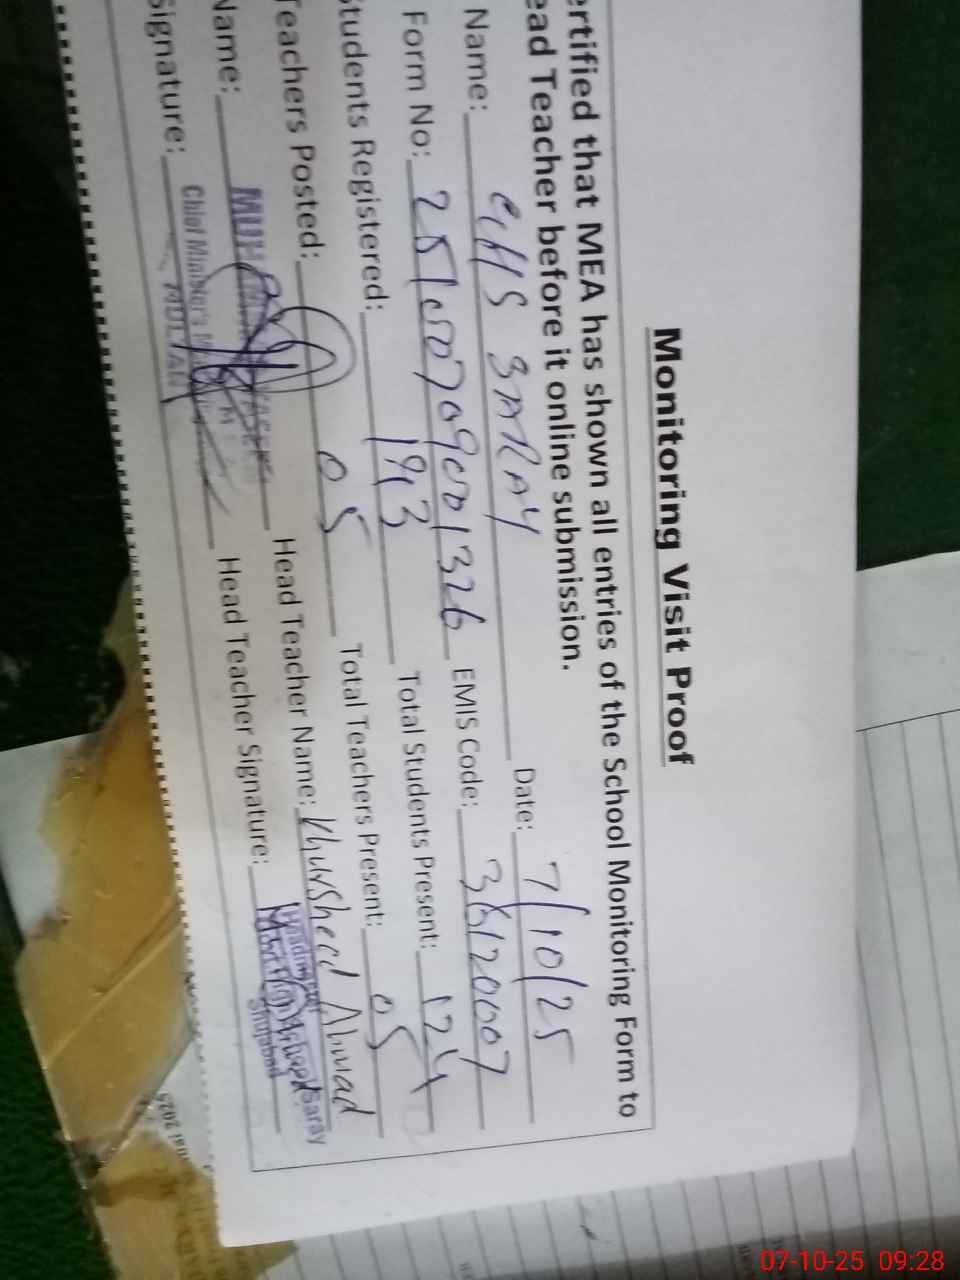 Monitoring Visit Proof
ertified that MEA has shown all entries of the School Monitoring Form to
ead Teacher before it online submission.
Name: GHS SARAY Date: 7/10/25
Form No: EMIS Code: 36120007
Students Registered: 193 Total Students Present: 124
Teachers Posted: 05 Total Teachers Present: 05
Name: MUH Head Teacher Name: Khursheed Ahmad
Signature: Chief Minister's Head Teacher Signature:
MULTAN
Headmaster
Saray
Shujabad
2025
07-10-25 09:28